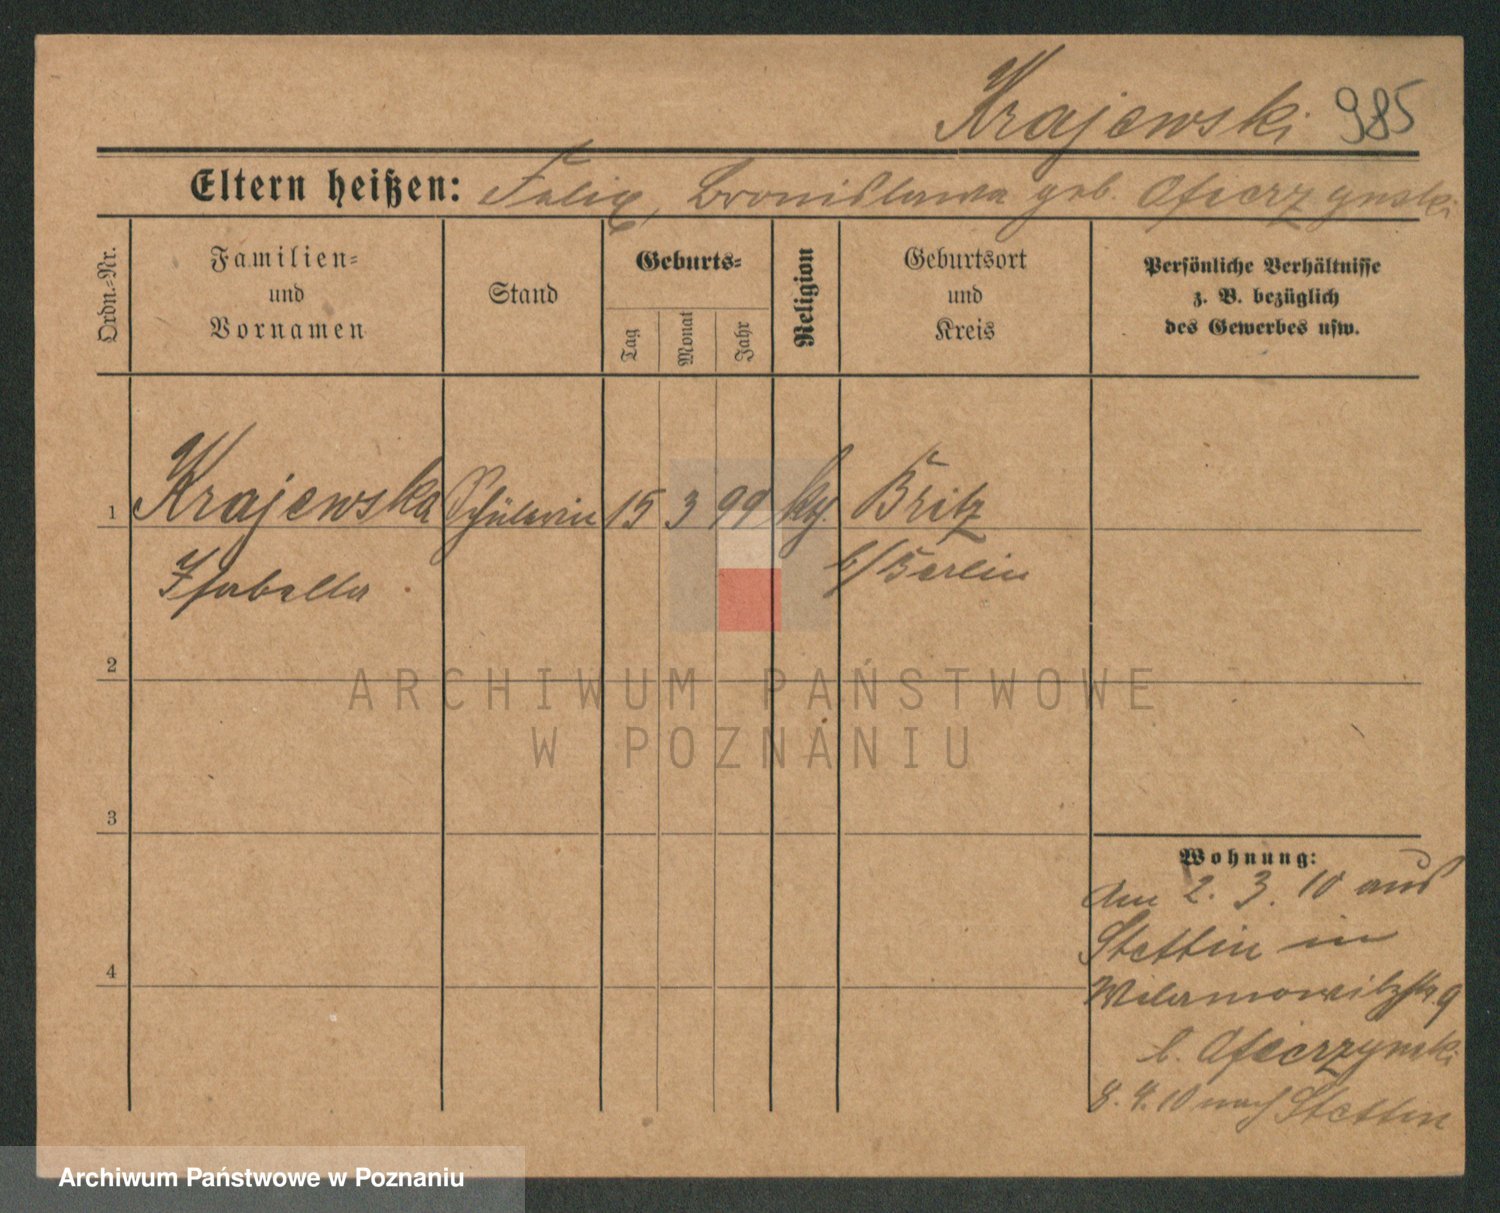 Krajewski 985
Eltern heißen: Felix, Bronislawa geb. Ofierzynski
Ordn.-Nr.
Familien-
und
Vornamen
Stand
Geburts-
Tag
Monat
Jahr
Religion
Geburtsort
und
Kreis
Persönliche Verhältnisse
z. B. bezüglich
des Gewerbes usw.
1 Krajewska Schülerin 15 3 99 kth. Britz
Isabella b/Berlin
2
3
4
Wohnung:
Am 2. 3. 10 aus
Stettin in
9
b. Ofierzynski
8. 4. 10 nach Stettin
ARCHIWUM PAŃSTWOWE
W POZNANIU
Archiwum Państwowe w Poznaniu